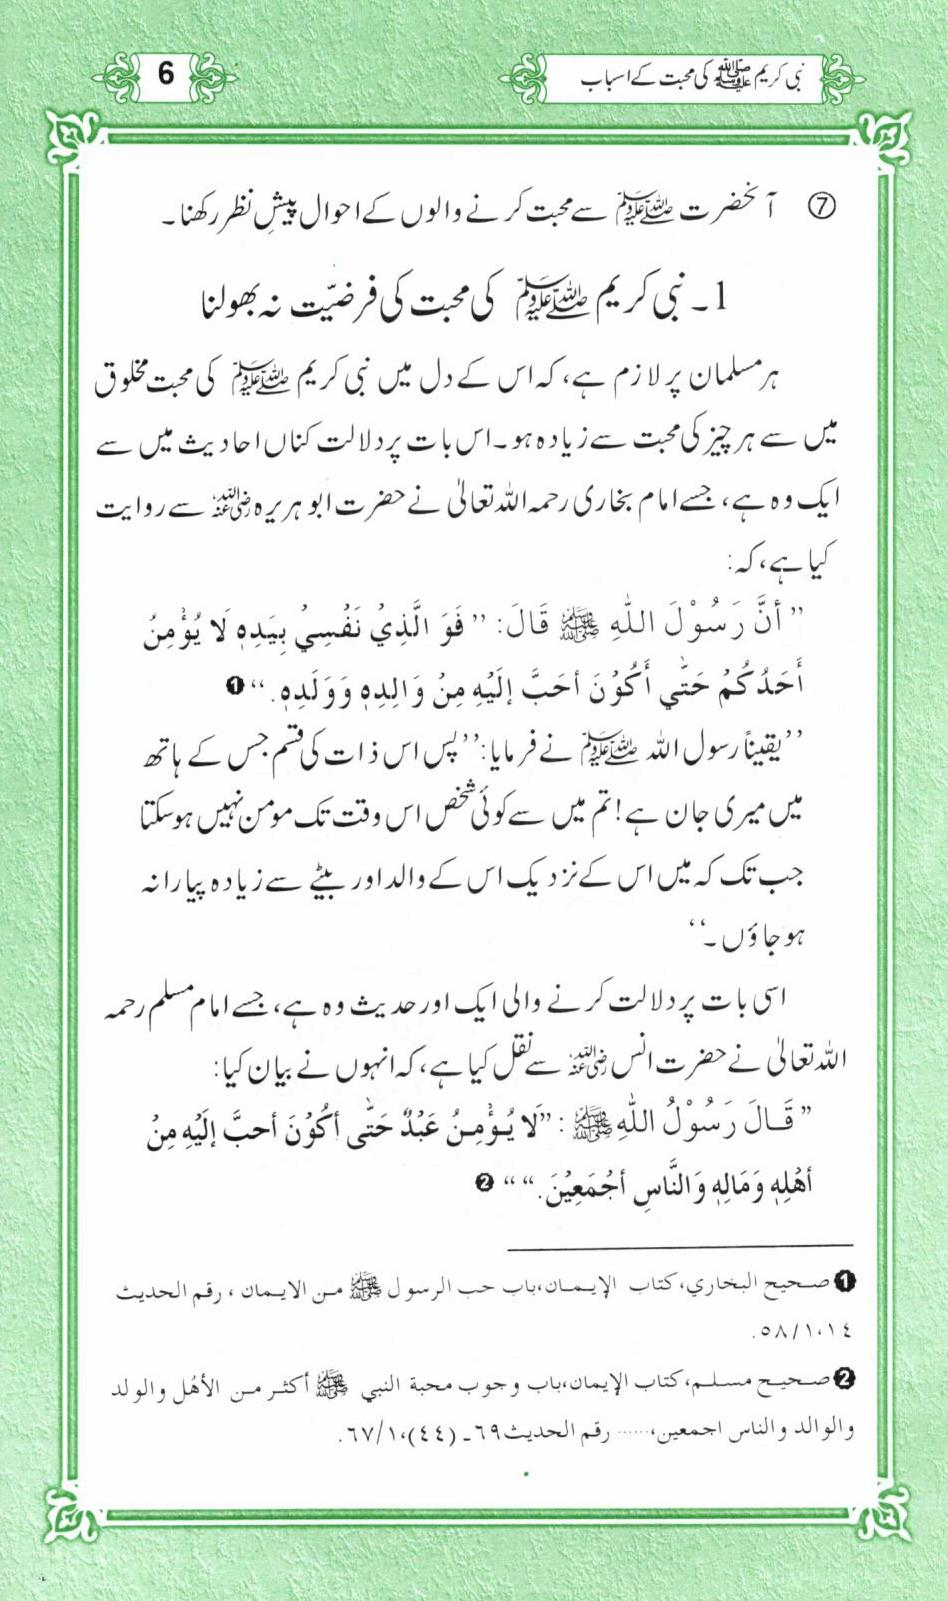 نبی کریم ﷺ کی محبت کے اسباب
6
⑦ آنحضرت ﷺ سے محبت کرنے والوں کے احوال پیشِ نظر رکھنا۔
1۔ نبی کریم ﷺ کی محبت کی فرضیّت نہ بھولنا
ہر مسلمان پر لازم ہے، کہ اس کے دل میں نبی کریم ﷺ کی محبت مخلوق
میں سے ہر چیز کی محبت سے زیادہ ہو۔ اس بات پر دلالت کناں احادیث میں سے
ایک وہ ہے، جسے امام بخاری رحمہ اللہ تعالیٰ نے حضرت ابو ہریرہ رضی اللہ عنہ سے روایت
کیا ہے، کہ:
”أنَّ رَسُوْلَ اللّٰهِ ﷺ قَالَ: ”فَوَ الَّذِيْ نَفْسِيْ بِيَدِهٖ لَا يُؤْمِنُ
أَحَدُكُمْ حَتّٰى أَكُوْنَ أحَبَّ إلَيْهِ مِنْ وَالِدِهٖ وَوَلَدِهٖ.“ ❶
”یقیناً رسول اللہ ﷺ نے فرمایا: ”پس اس ذات کی قسم جس کے ہاتھ
میں میری جان ہے! تم میں سے کوئی شخص اس وقت تک مومن نہیں ہوسکتا
جب تک کہ میں اس کے نزدیک اس کے والد اور بیٹے سے زیادہ پیارا نہ
ہو جاؤں۔“
اسی بات پر دلالت کرنے والی ایک اور حدیث وہ ہے، جسے امام مسلم رحمہ
اللہ تعالیٰ نے حضرت انس رضی اللہ عنہ سے نقل کیا ہے، کہ انہوں نے بیان کیا:
”قَالَ رَسُوْلُ اللّٰهِ ﷺ: ”لَا يُؤْمِنُ عَبْدٌ حَتّٰى أكُوْنَ أحبَّ إلَيْهِ مِنْ
أهْلِهٖ وَمَالِهٖ وَالنَّاسِ أجْمَعِيْنَ.“ “ ❷
❶ صحيح البخاري، كتاب الإيمان، باب حب الرسول ﷺ من الايمان ، رقم الحديث
١٤، ٥٨/١.
❷ صحيح مسلم، كتاب الإيمان، باب وجوب محبة النبي ﷺ أكثر من الأهل والولد
والوالد والناس اجمعين،...... رقم الحديث ٦٩ـ (٤٤)، ٦٧/١.